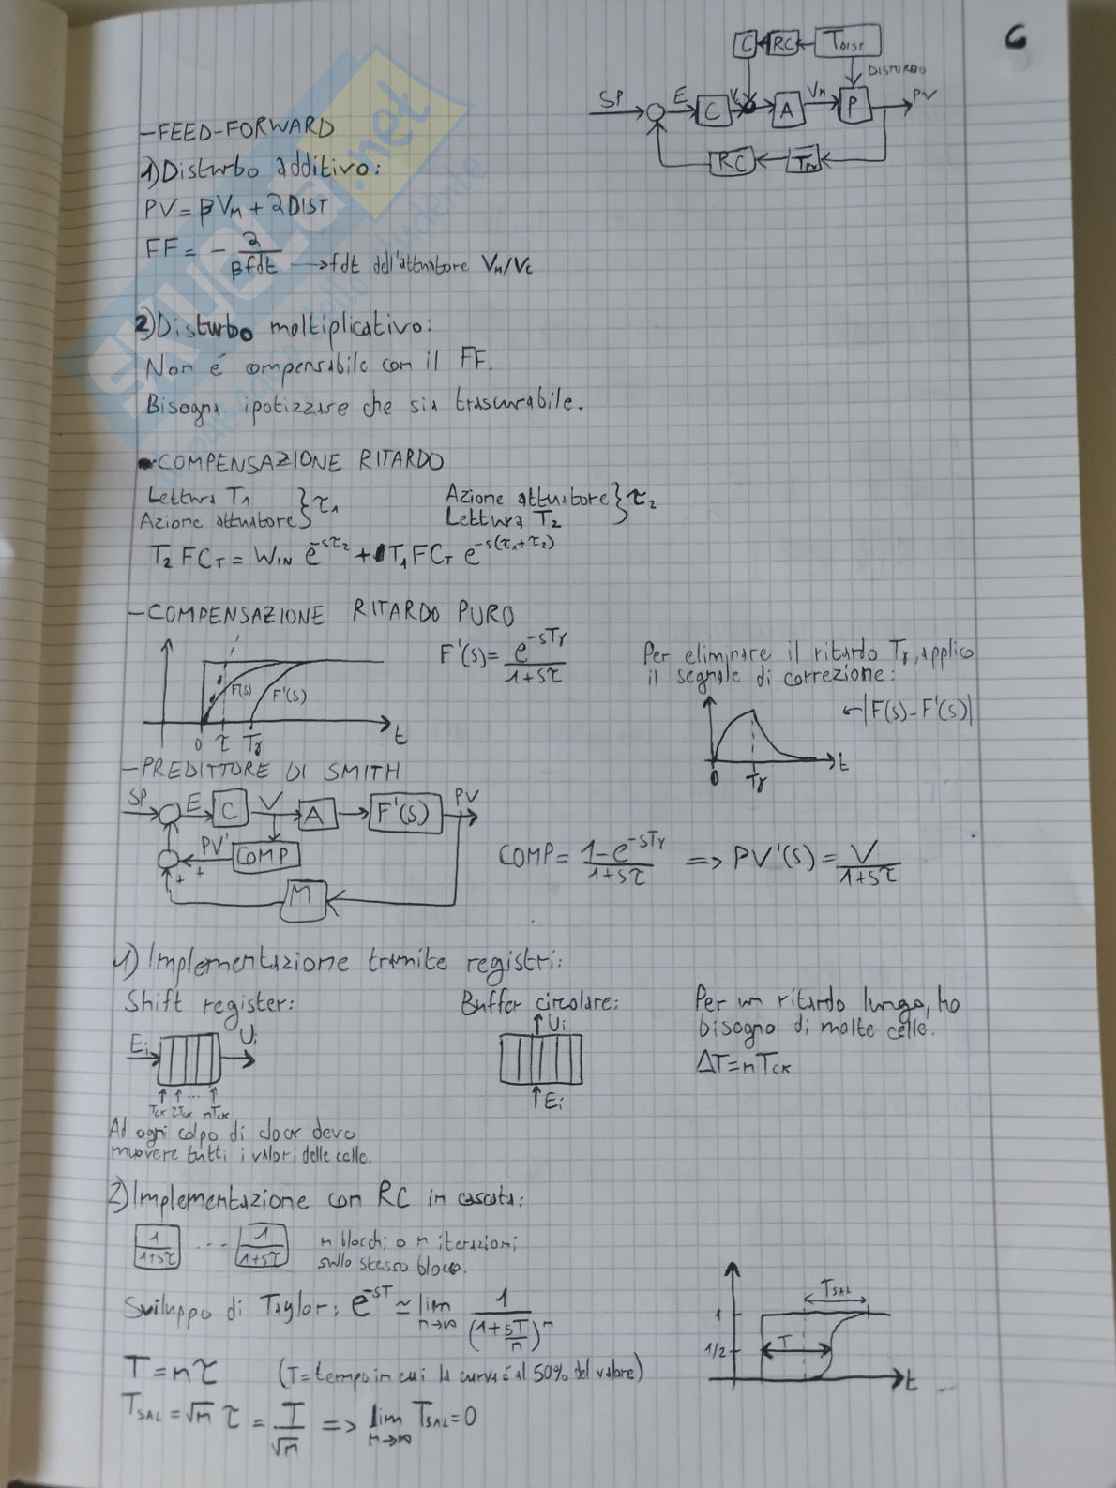 6
C RC T
DISTURBO
SP E C A VM P PV
RC
-FEED-FORWARD
1) Disturbo additivo:
PV = βVM + 2DIST
FF = - 2/βfdt → fdt dell'attuatore VM/VC
2) Disturbo moltiplicativo:
Non é compensabile con il FF.
Bisogna ipotizzare che sia trascurabile.
•COMPENSAZIONE RITARDO
Lettura T1 } τ1 Azione attuatore } τ2
Azione attuatore Lettura T2
T2 FCT = WIN e^-sτ2 + T1 FCT e^-s(τ1+τ2)
-COMPENSAZIONE RITARDO PURO
F(s) F'(s) 0 τ Tγ t
F'(s) = e^-sTγ/1+sτ
Per eliminare il ritardo Tγ, applico
il segnale di correzione:
←|F(s)-F'(s)|
0 Tγ t
-PREDITTORE DI SMITH
SP E C V A F'(s) PV
PV' COMP
+ +
M
COMP = 1-e^-sTγ/1+sτ => PV'(s) = V/1+sτ
1) Implementazione tramite registri:
Shift register: Buffer circolare: Per un ritardo lungo, ho
bisogno di molte celle.
ΔT = nTCK
Ei Ui Ui
TCK 2TCK ... nTCK Ei
Ad ogni colpo di clock devo
muovere tutti i valori delle celle.
2) Implementazione con RC in cascata:
1/1+sτ ... 1/1+sτ n blocchi o n iterazioni
sullo stesso blocco.
Sviluppo di Taylor: e^-sT ≃ lim n→∞ 1/(1+sT/n)^n
T = nτ (T = tempo in cui la curva é al 50% del valore)
TSAL = √n τ = T/√n => lim n→∞ TSAL = 0
TSAL
1
1/2 T
t